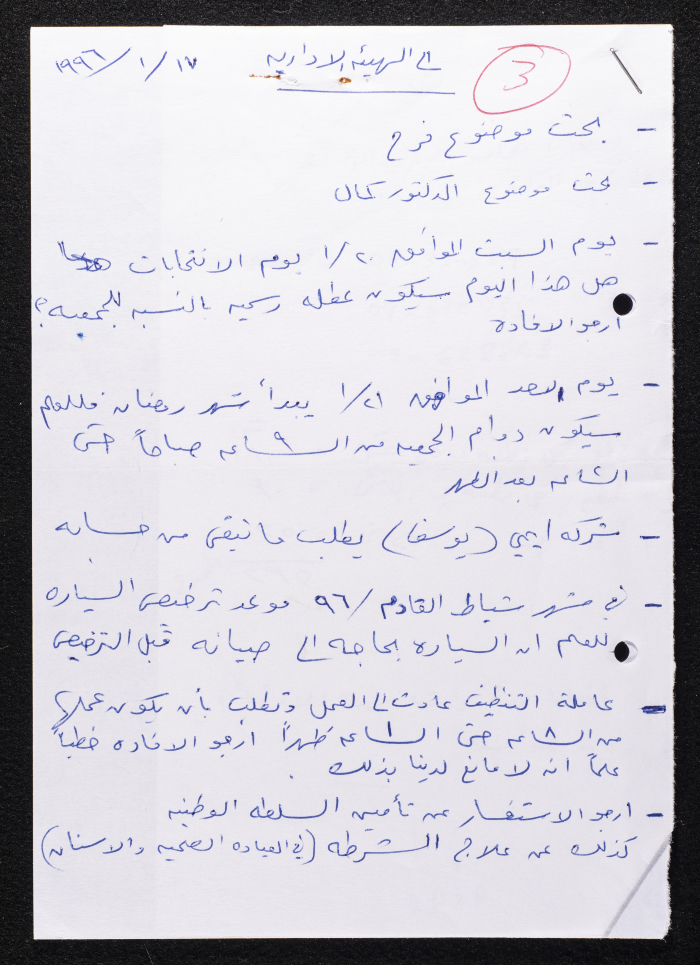 ١٩٩٦/١/١٧
الى الهيئه الاداريه
3
- بحث موضوع فرح
- بحث موضوع الدكتور كمال
- يوم السبت الموافق ١/٢٠ يوم الانتخابات
هل هذا اليوم سيكون عطله رسميه بالنسبه للجمعيه؟
ارجو الافاده
- يوم الاحد الموافق ١/٢١ يبدأ شهر رمضان فللعلم
سيكون دوام الجمعيه من الساعه ٩ صباحاً حتى
الساعه ٢ بعد الظهر
- شركه ايجي (يوسف) يطلب ما تبقى من حسابه
- في شهر شباط القادم /٩٦ موعد ترخيص السياره
للعلم ان السياره بحاجه الى صيانه قبل الترخيص
- عاملة التنظيف عادت الى العمل وتطلب بأن يكون عملها
من الساعه ٨ حتى الساعه ١ ظهراً ارجو الافاده خطياً
علماً انه لا مانع لدينا بذلك .
- ارجو الاستفسار عن تأمين السلطه الوطنيه
كذلك عن علاج الشرطه (في العياده الصحيه والاسنان)